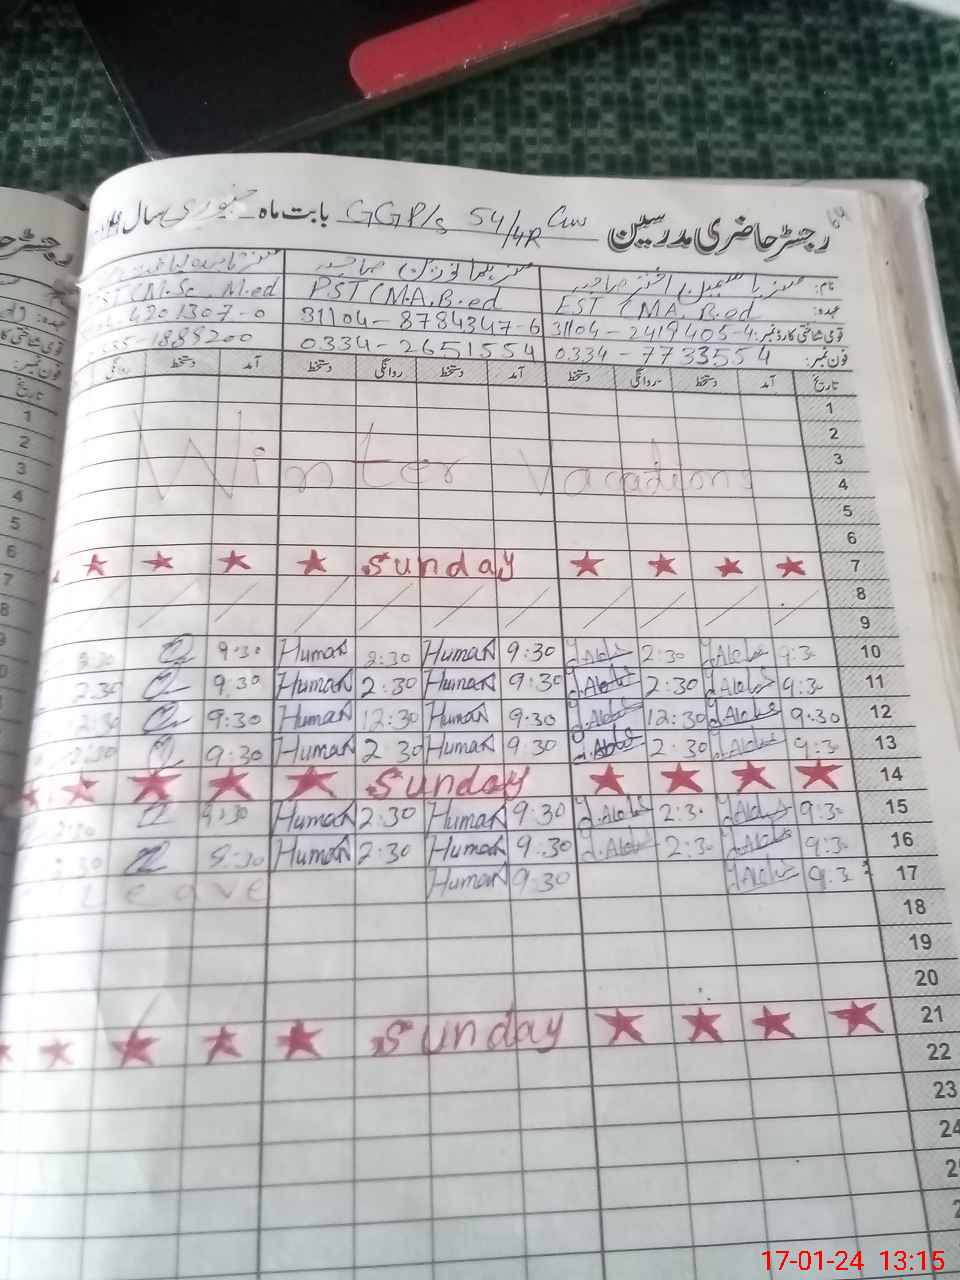 رجسٹر حاضری مدرسین GGP/S 54/4R بابت ماہ جنوری سال
نام: مسز یاسمین اختر صاحبہ مسز ہما نورین صاحبہ
عہدہ: EST (M.A. B.ed PST (M.A. B.ed PST (M.Sc. M.ed
قومی شناختی کارڈ نمبر: 31104-2419405-4 31104-8784347-6 4201307-0
فون نمبر: 0334-7733554 0334-2651554 0335-1888200
تاریخ آمد دستخط روانگی دستخط آمد دستخط روانگی دستخط آمد دستخط روانگی
1
2
Winter Vacations 3
4
5
6
Sunday 7
8
9
2:30 9:30 Human 2:30 Human 9:30 2:30 9:30 10
2:30 9:30 Human 2:30 Human 9:30 2:30 9:30 11
12:30 9:30 Human 12:30 Human 9:30 12:30 9:30 12
2:30 9:30 Human 2:30 Human 9:30 2:30 9:30 13
Sunday 14
2:30 9:30 Human 2:30 Human 9:30 2:30 9:30 15
2:30 9:30 Human 2:30 Human 9:30 2:30 9:30 16
Leave Human 9:30 9:30 17
18
19
20
Sunday 21
22
23
24
17-01-24 13:15